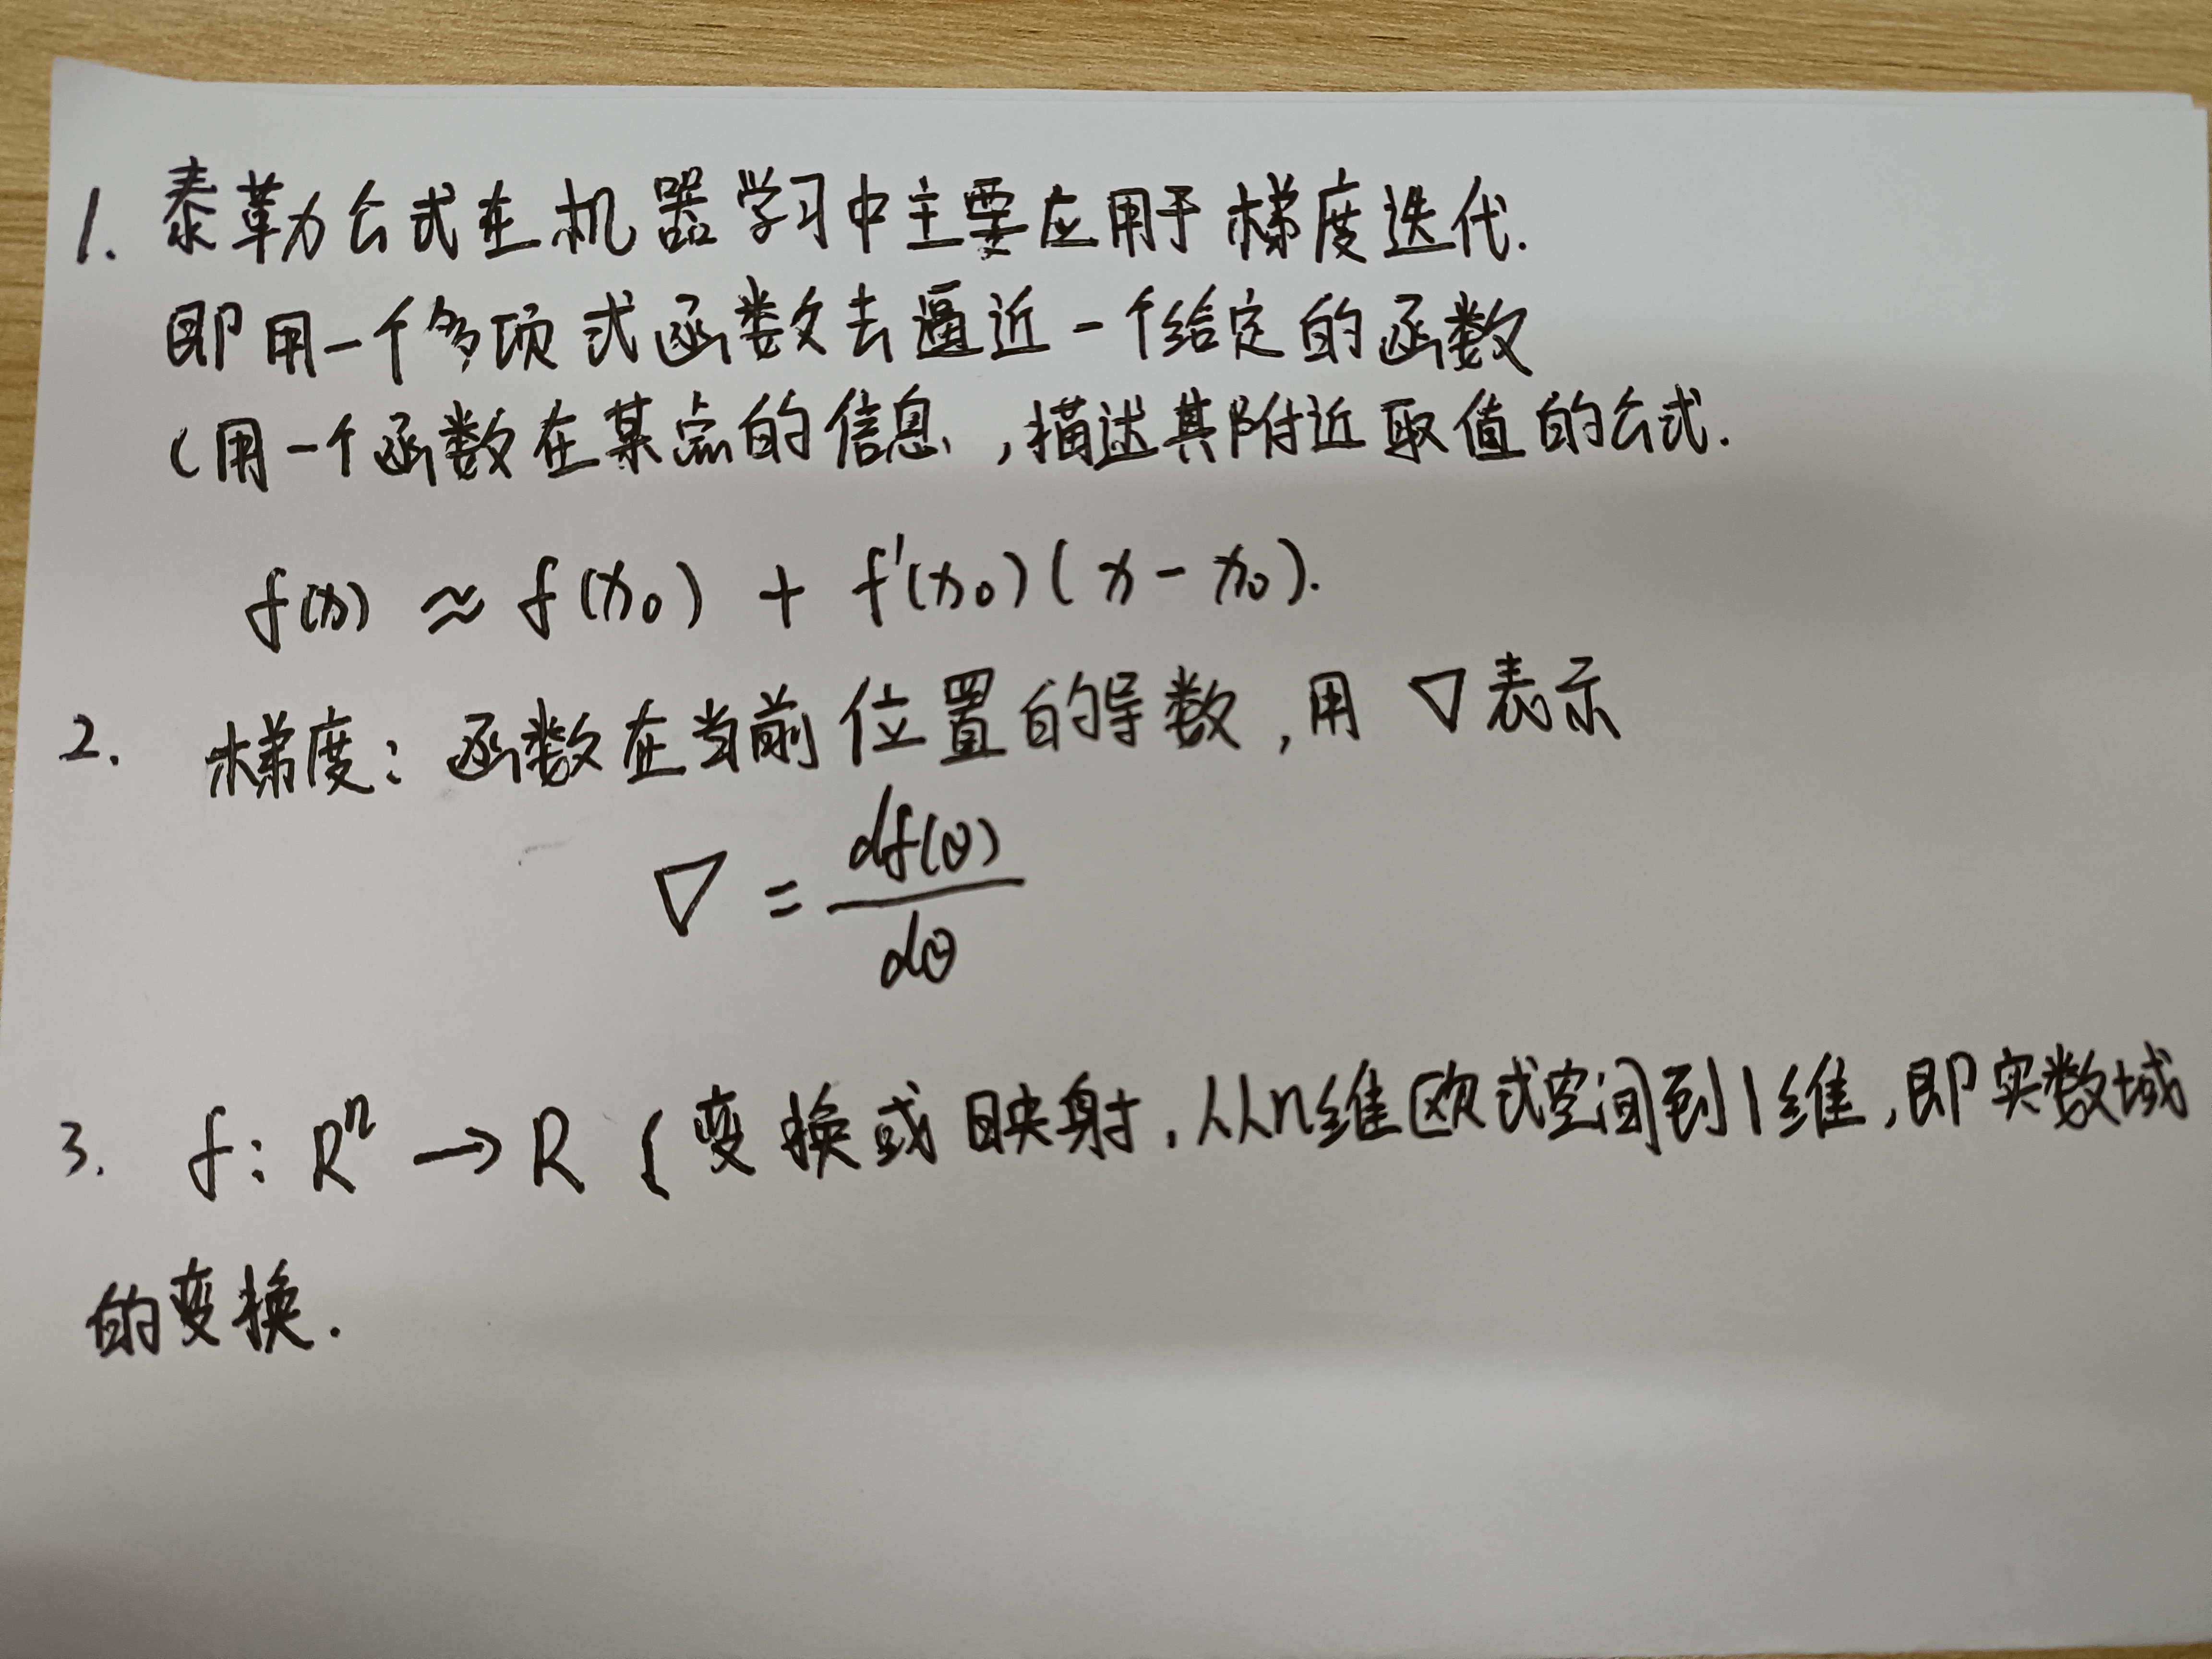 1. 泰勒公式在机器学习中主要应用于梯度迭代.
即用一个多项式函数去逼近一个给定的函数
(用一个函数在某点的信息,描述其附近取值的公式.
f(x) ≈ f(x₀) + f'(x₀)(x - x₀).
2. 梯度: 函数在当前位置的导数,用 ▽表示
▽ = df(θ)/dθ
3. f: Rⁿ → R (变换或映射,从n维欧式空间到1维,即实数域
的变换.